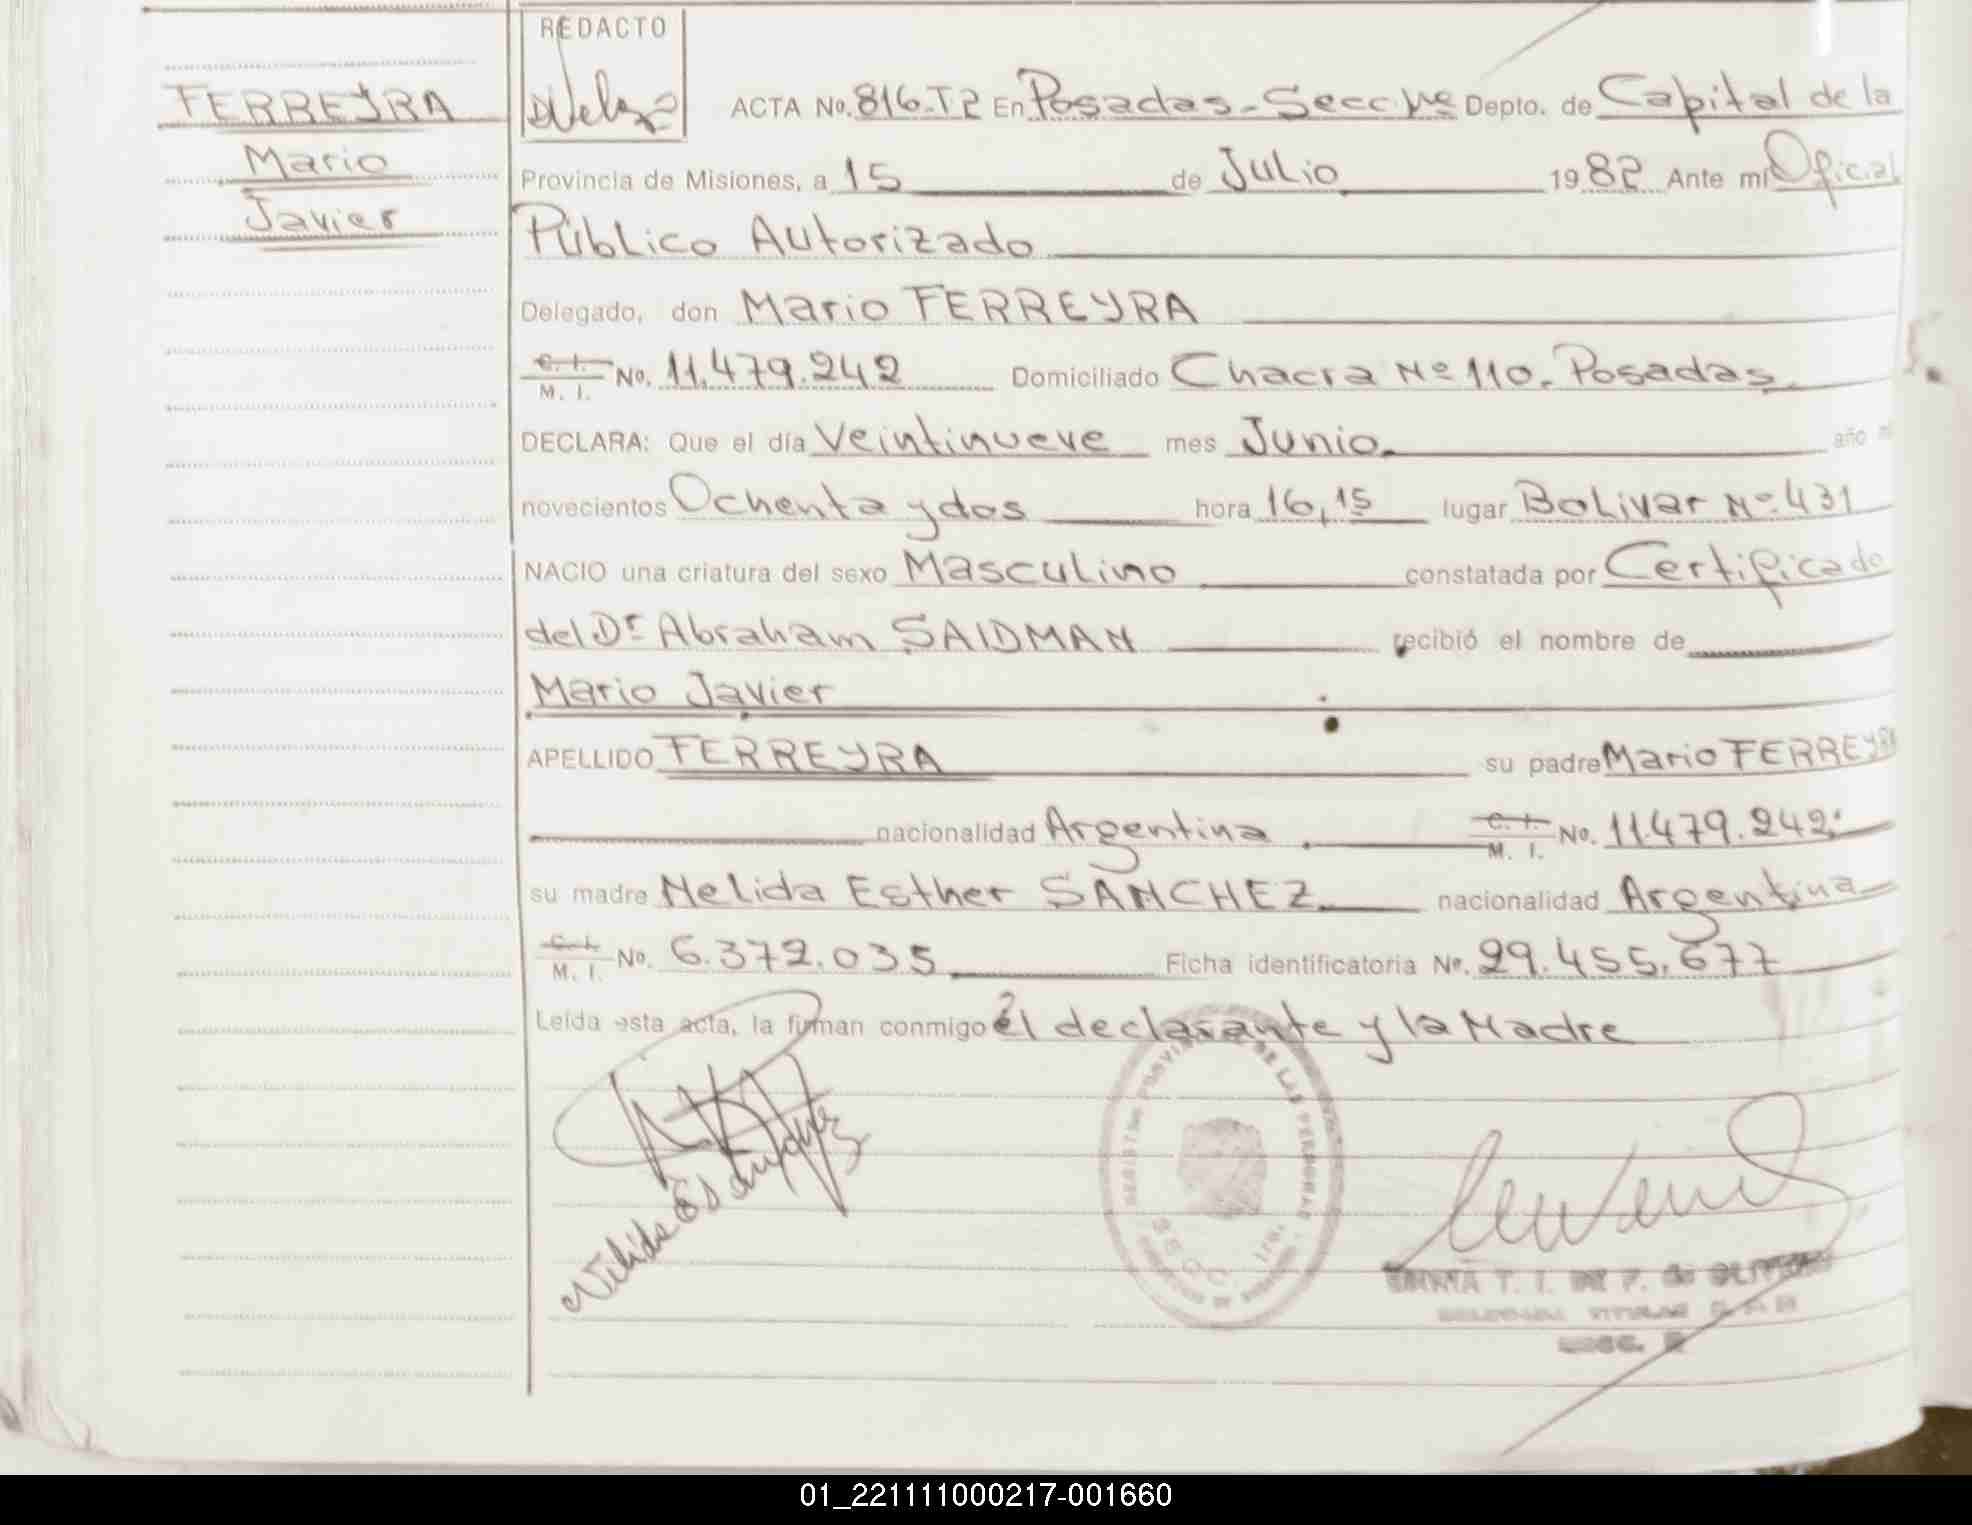 REDACTO
FERREYRA
Mario
Javier
ACTA No. 816-T2 En Posadas - Secc. Depto. de Capital de la
Provincia de Misiones, a 15 de Julio 1982 Ante mi Oficial
Público Autorizado
Delegado, don Mario FERREYRA
C. I. M. I. No. 11.479.242 Domiciliado Chacra Nº 110. Posadas
DECLARA: Que el día Veintinueve mes Junio año
novecientos Ochenta y dos hora 16,15 lugar Bolivar Nº 431
NACIO una criatura del sexo Masculino constatada por Certificado
del Dr Abraham SAIDMAN recibió el nombre de
Mario Javier
APELLIDO FERREYRA su padre Mario FERREYRA
nacionalidad Argentina C. I. M. I. No. 11.479.242
su madre Nelida Esther SANCHEZ nacionalidad Argentina
C. I. M. I. No. 6.372.035 Ficha identificatoria Nº. 29.455.677
Leída esta acta, la firman conmigo él declarante y la Madre
REGISTRO PROVINCIAL DE LAS PERSONAS
SECC. 1ra.
Nélida
01_221111000217-001660